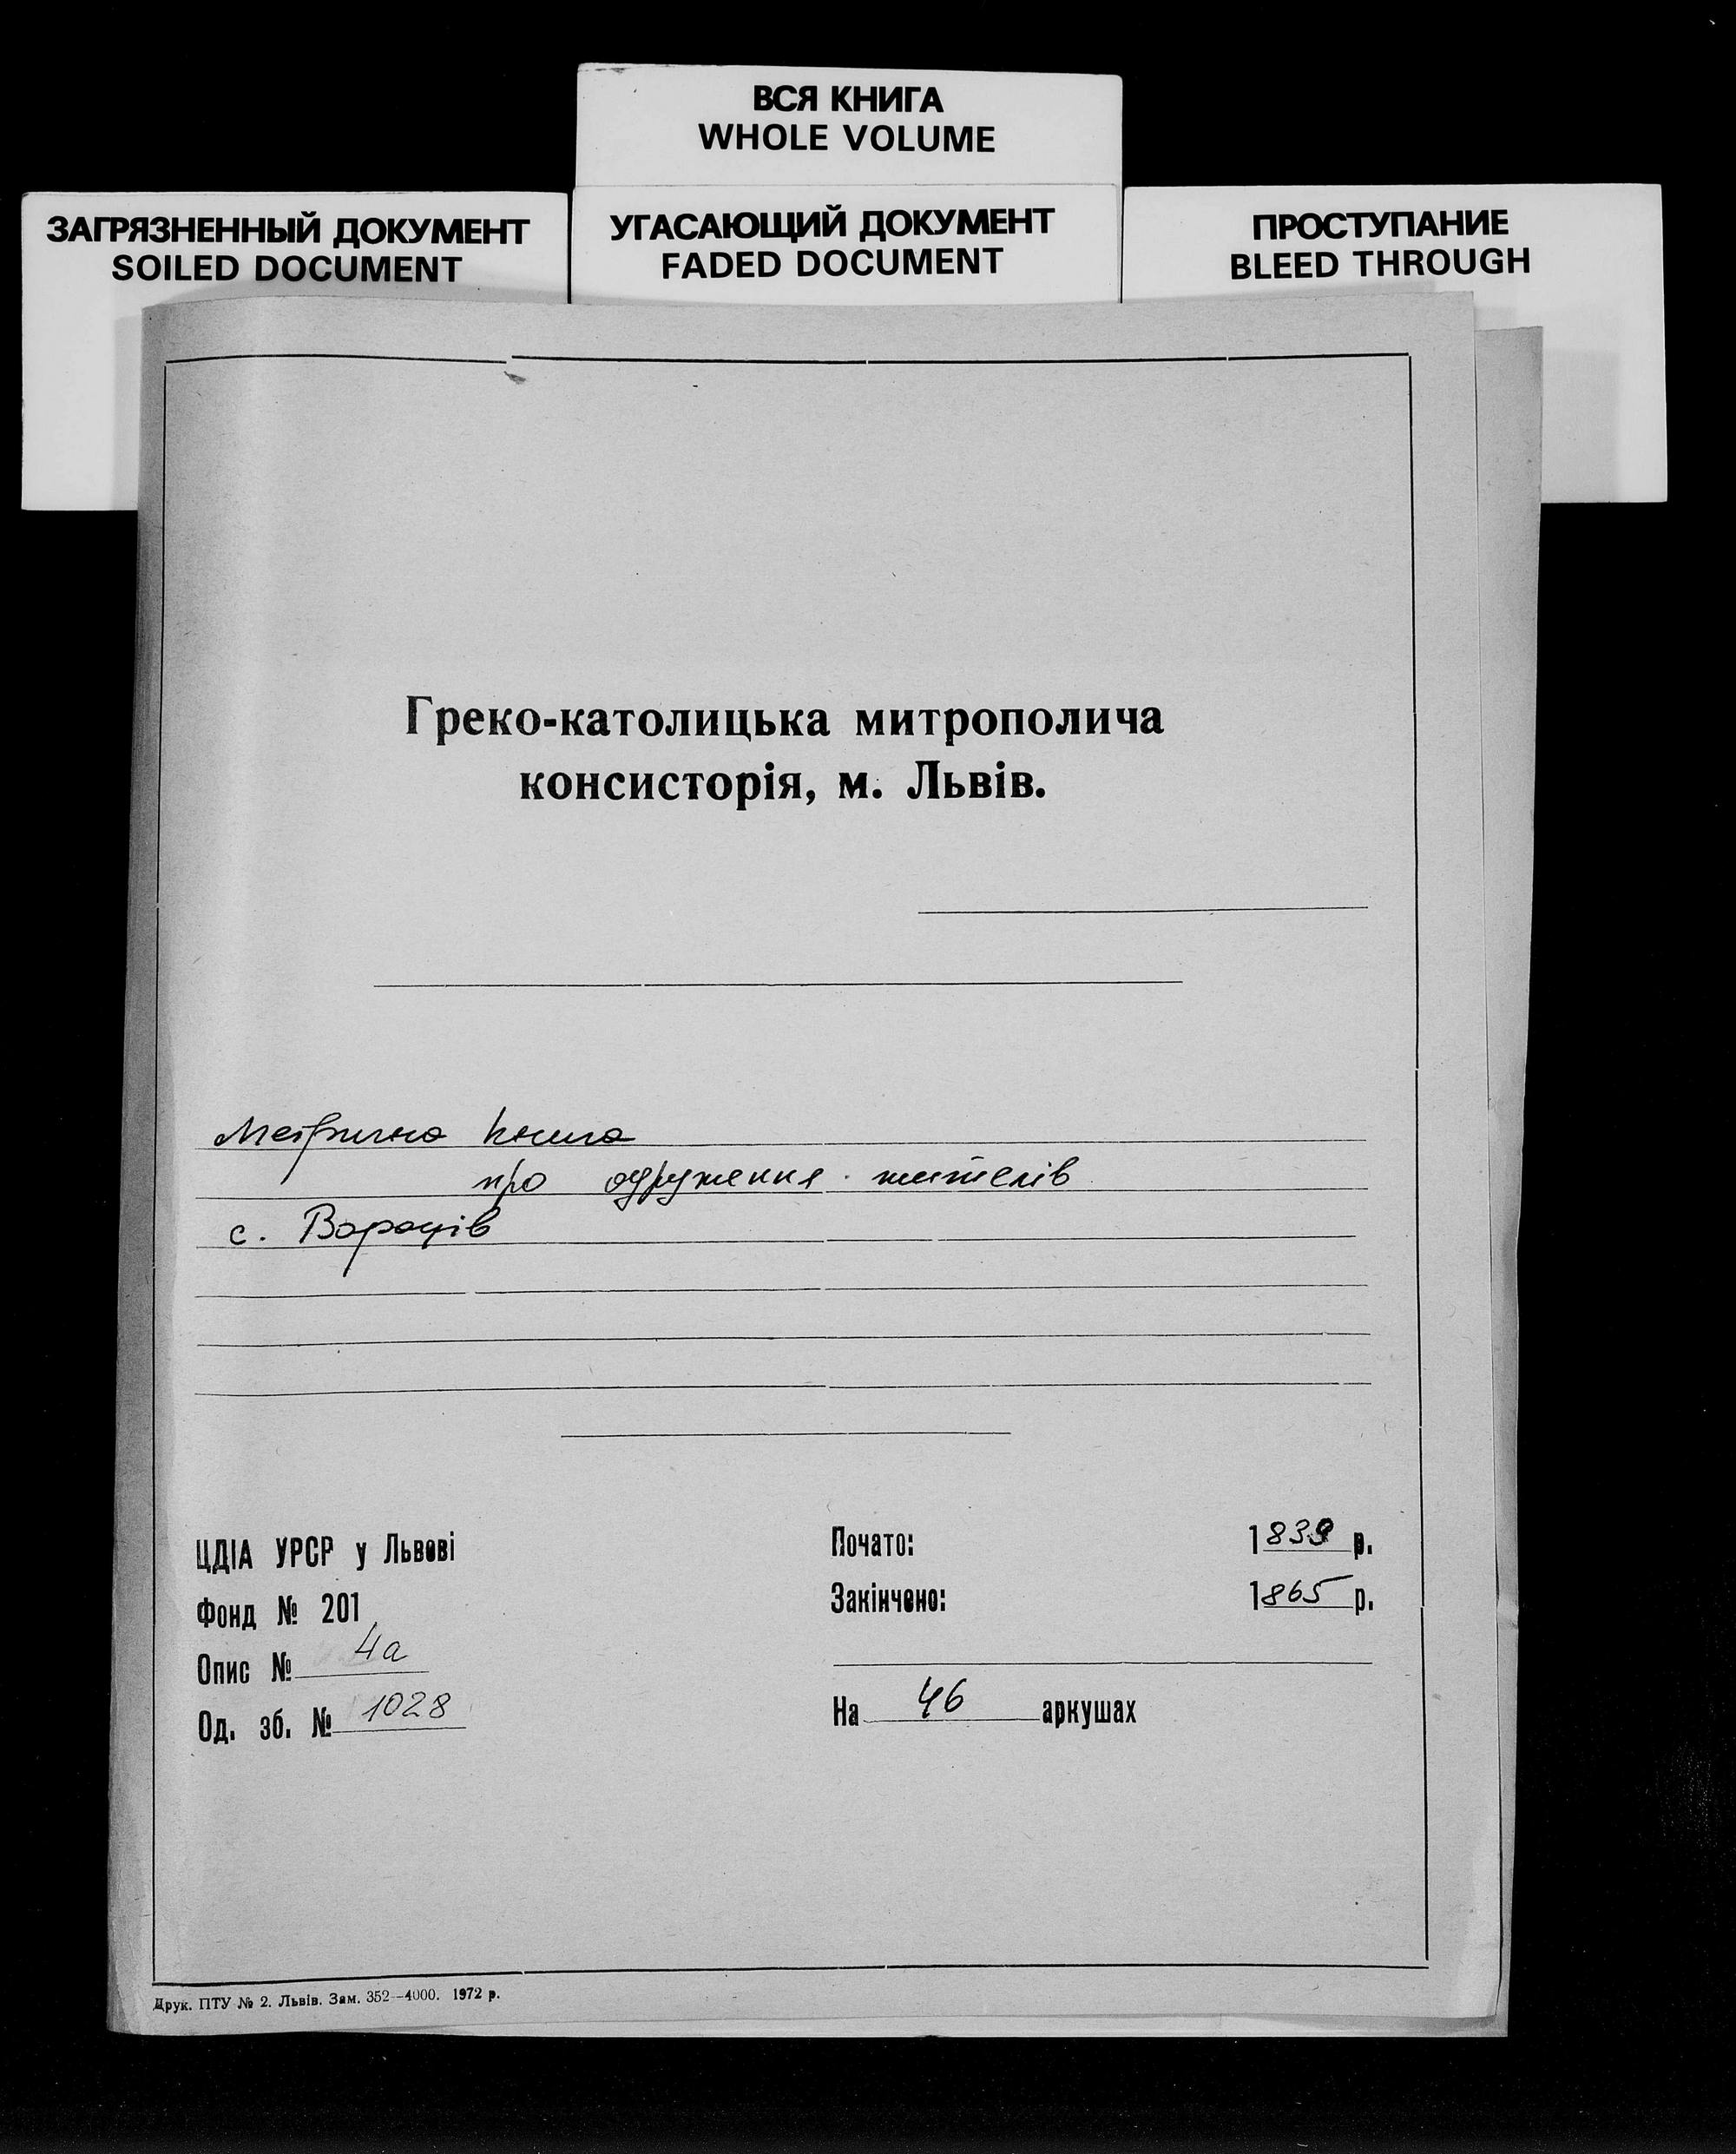 ВСЯ КНИГА
WHOLE VOLUME
ЗАГРЯЗНЕННЫЙ ДОКУМЕНТ
SOILED DOCUMENT
УГАСАЮЩИЙ ДОКУМЕНТ
FADED DOCUMENT
ПРОСТУПАНИЕ
BLEED THROUGH
Греко-католицька митрополича
консисторія, м. Львів.
Метрична книга
про одруження жителів
с. Вороців
ЦДІА УРСР у Львові
Фонд № 201
Опис № 4а
Од. зб. № 1028
Почато: 1839 р.
Закінчено: 1865 р.
На 46 аркушах
Друк. ПТУ № 2. Львів. Зам. 352—4000. 1972 р.